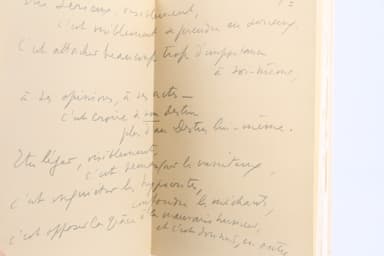 Être sérieux, visiblement,
c'est visiblement se prendre au sérieux
C'est attacher beaucoup trop d'importance
à soi-même,
à ses opinions, à ses actes —
c'est croire à son destin
plus qu'au Destin lui-même.
Etre léger, visiblement,
c'est
c'est inquiéter les hypocrites,
confondre les méchants,
c'est opposer la grâce à la mauvaise humeur,
et c'est donner, en outre,